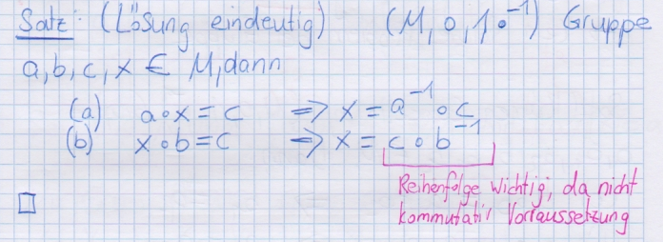 Satz: (Lösung eindeutig) (M, ∘, 1, ∘⁻¹) Gruppe
a,b,c,x ∈ M, dann
(a) a∘x = c ⇒ x = a⁻¹ ∘ c
(b) x∘b = c ⇒ x = c ∘ b⁻¹
Reihenfolge wichtig, da nicht
kommutativ Vorraussetzung